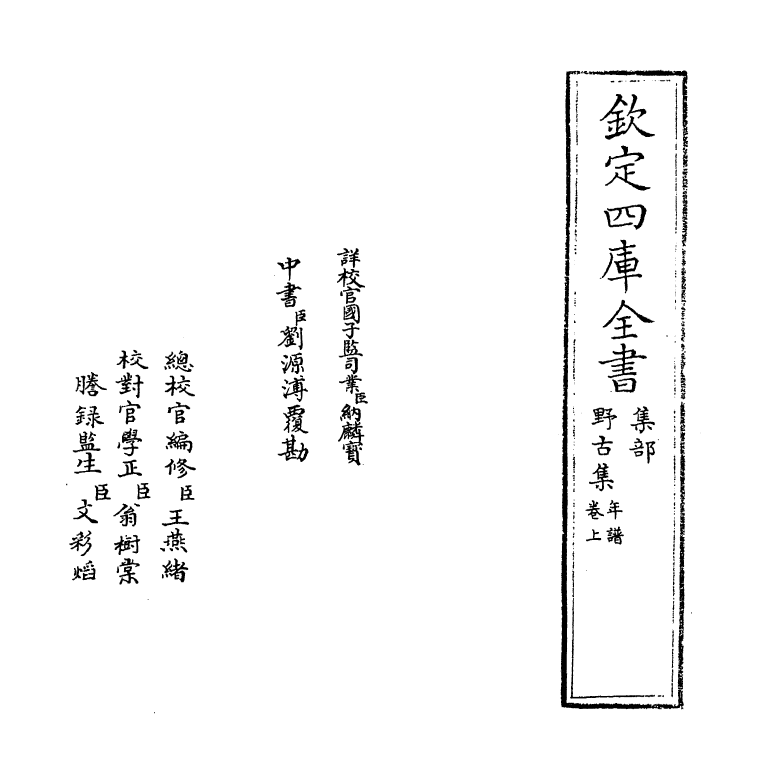 欽定四庫全書
集部
野古集
年譜
卷上
詳校官國子監司業臣納麟寶
中書臣劉源溥覆勘
總校官編修臣王燕緒
校對官學正臣翁樹棠
謄錄監生臣文彩